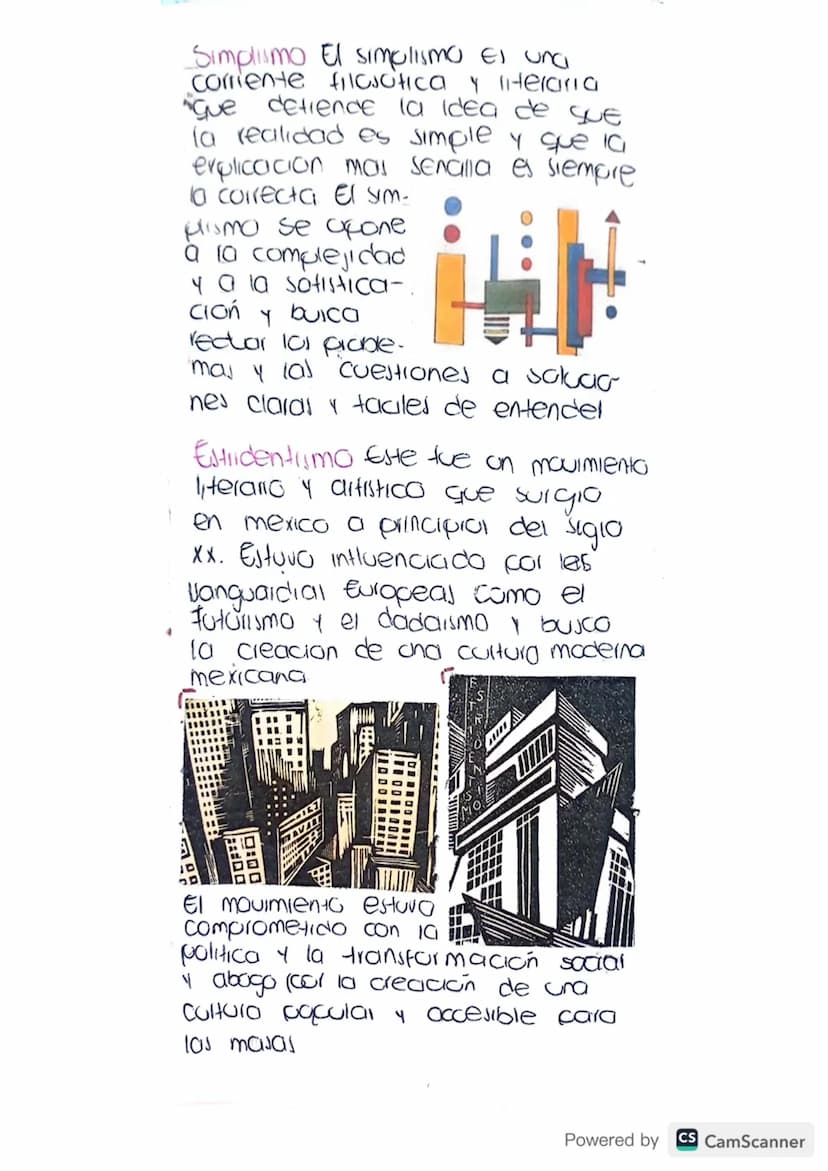 Simplismo El simplismo es una
corriente filosofica y literaria
que defiende la idea de que
la realidad es simple y que la
explicacion mas sencilla es siempre
la correcta El sim-
plismo se opone
a la complejidad
y a la sofistica-
ción y busca
los proble-
mas y las cuestiones a solucio-
nes claras y faciles de entender
Estridentismo Este fue un movimiento
literario y artístico que surgio
en mexico a principios del siglo
xx. Estuvo influenciado por las
vanguardias Europeas como el
futurismo y el dadaismo y busco
la creacion de una cultura moderna
mexicana
ESTRIDENTISMO
El movimiento estuvo
comprometido con la
politica y la transformación social
y abogo por la creación de una
cultura popular y accesible para
las masas
Powered by CS CamScanner